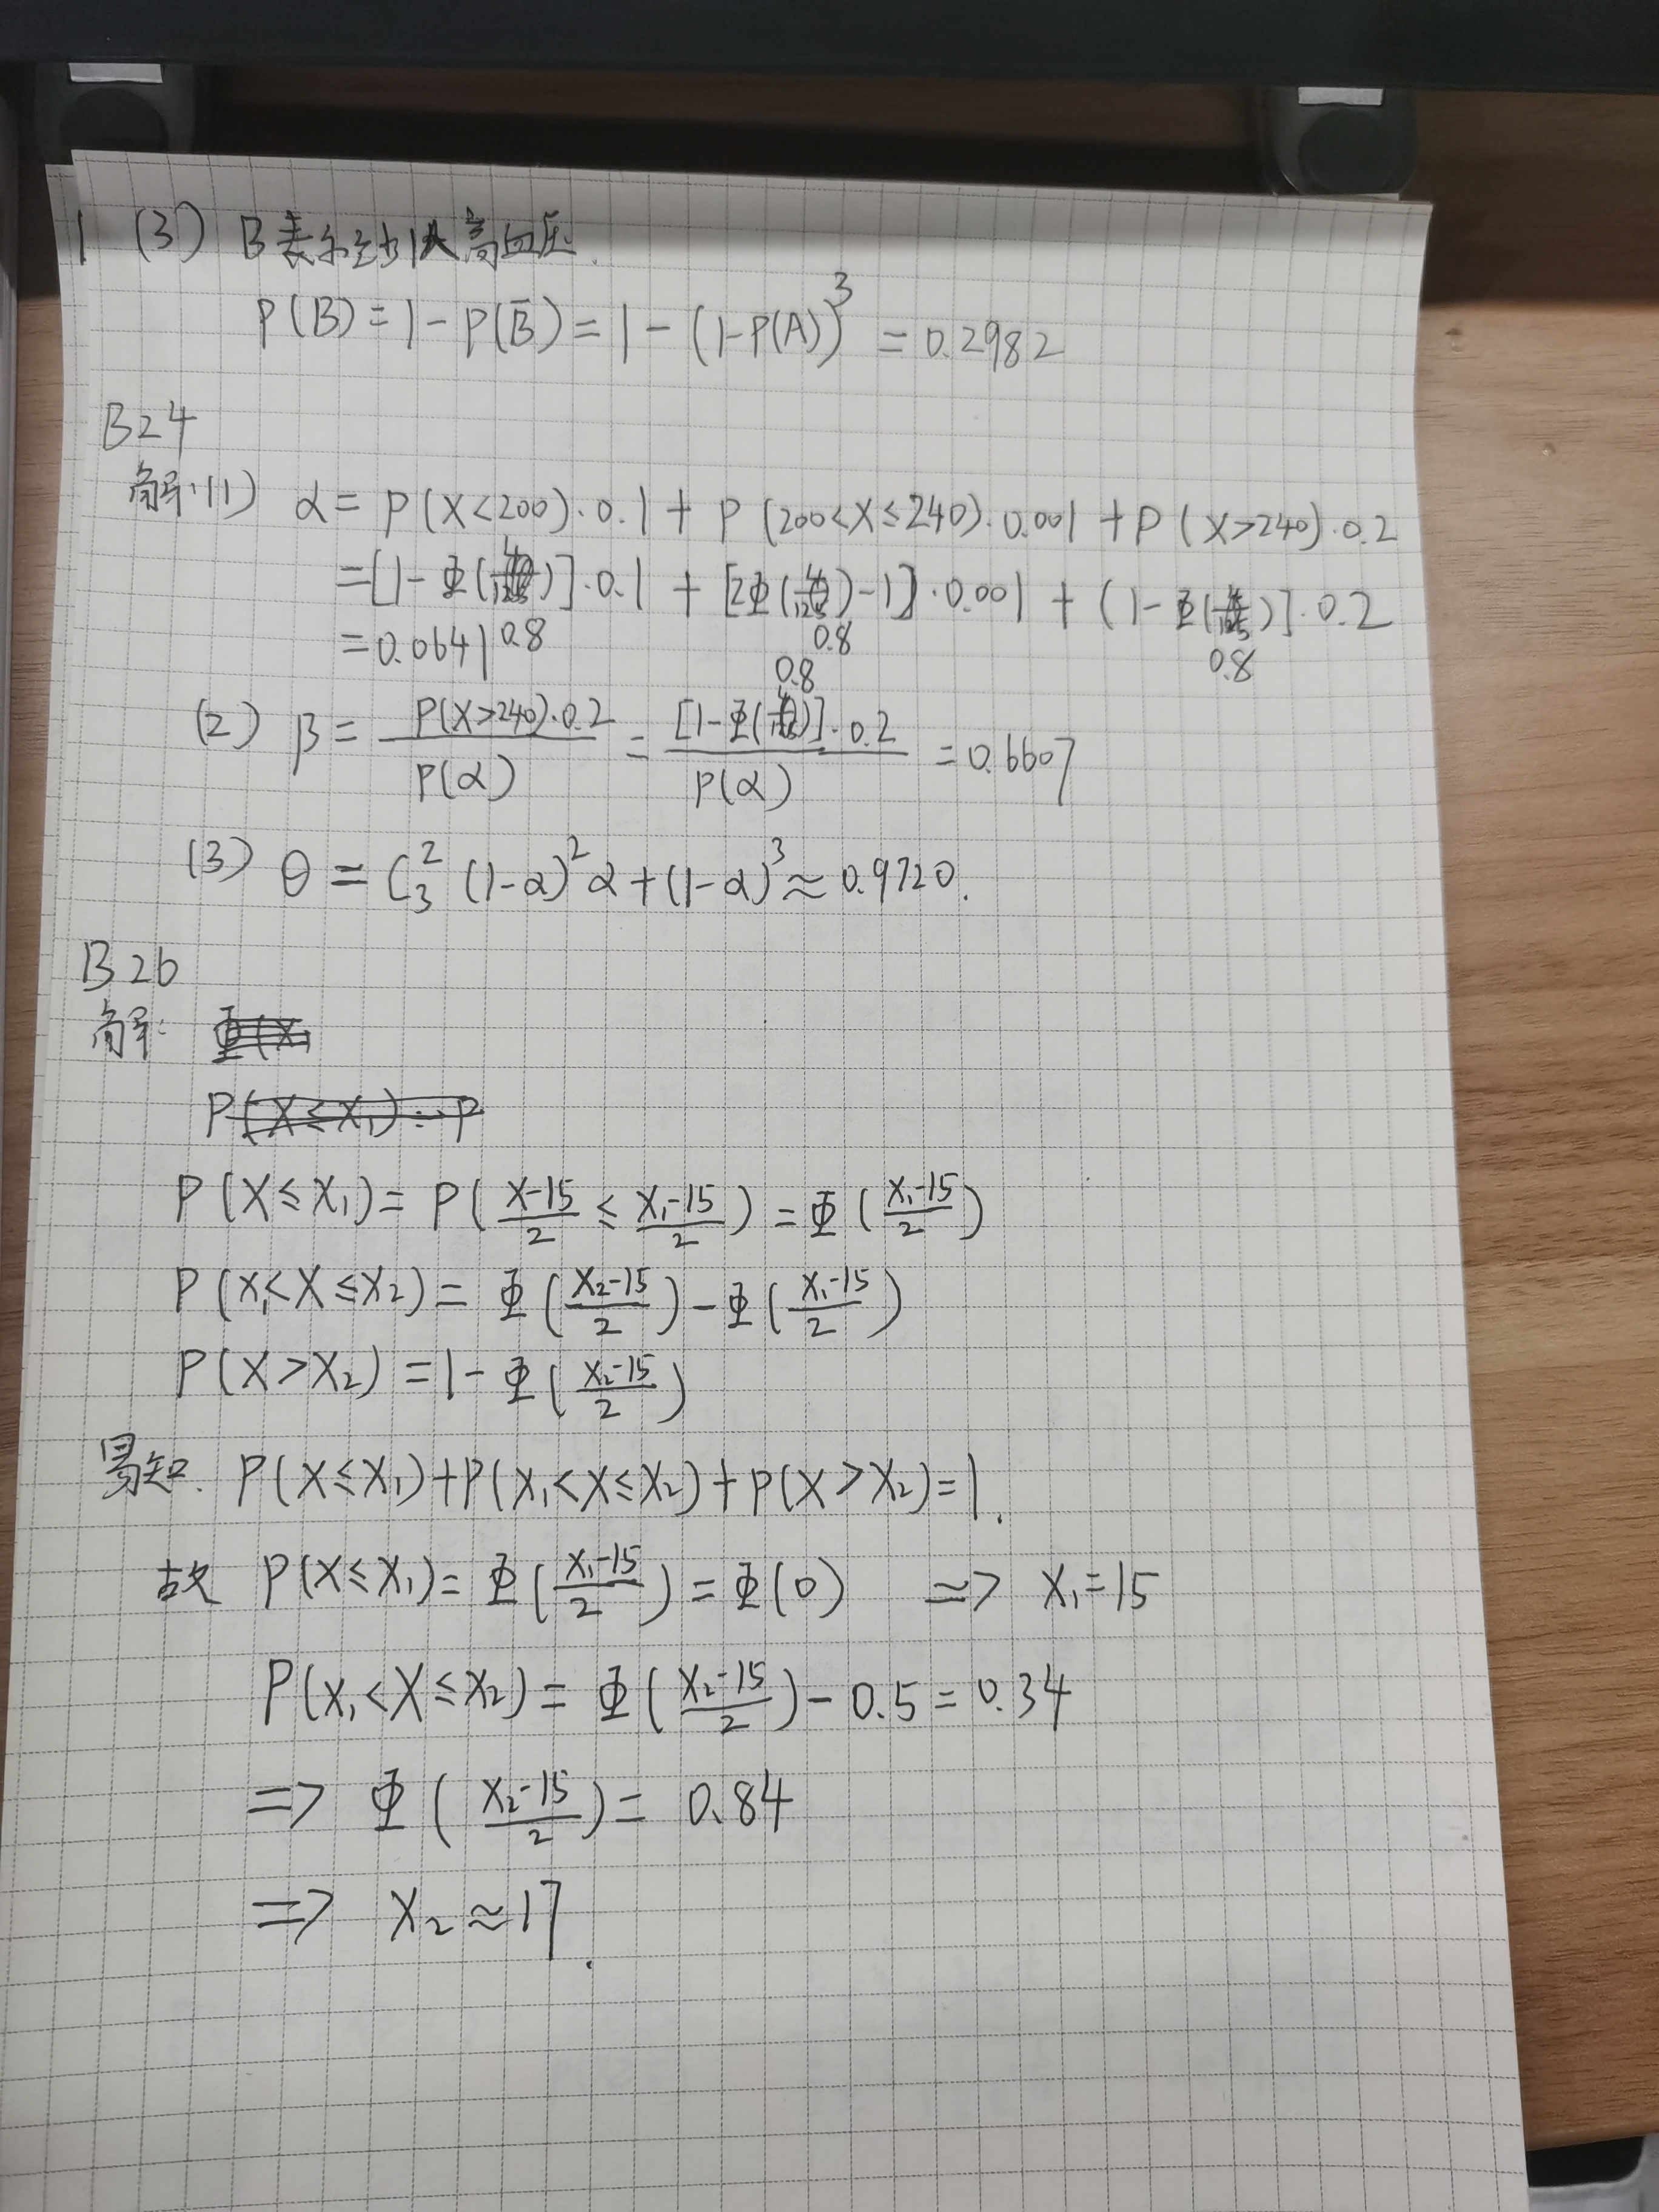 1 (3) B表示至少1人高血压.
P(B)=1-P(B̄)=1-(1-P(A))³=0.2982
B24
解:(1) α=P(X<200)·0.1+P(200<X≤240)·0.001+P(X>240)·0.2
=[1-Φ()]·0.1+[2Φ()-1]·0.001+(1-Φ()]·0.2
=0.0641 0.8 0.8 0.8
0.8
(2) β=P(X>240)·0.2/P(α)=[1-Φ()]·0.2/P(α)=0.6607
(3) θ=C₃²(1-α)²α+(1-α)³≈0.9720.
B26
解: Φ(X₁
P(X≤X₁)=P
P(X≤X₁)=P((X-15)/2≤(X₁-15)/2)=Φ((X₁-15)/2)
P(X₁<X≤X₂)=Φ((X₂-15)/2)-Φ((X₁-15)/2)
P(X>X₂)=1-Φ((X₂-15)/2)
易知. P(X≤X₁)+P(X₁<X≤X₂)+P(X>X₂)=1.
故 P(X≤X₁)=Φ((X₁-15)/2)=Φ(0) => X₁=15
P(X₁<X≤X₂)=Φ((X₂-15)/2)-0.5=0.34
=> Φ((X₂-15)/2)=0.84
=> X₂≈17.